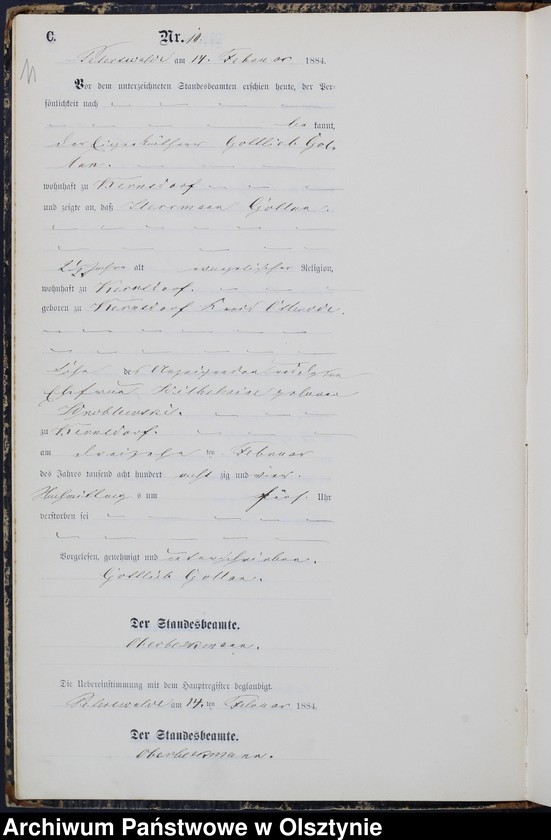 C. Nr. 10.
11
Peterswalde am 14. Februar 1884.
Vor dem unterzeichneten Standesbeamten erschien heute, der Per-
sönlichkeit nach
be kannt,
der Eigenkäthner Gottlieb Gol-
lan.
wohnhaft zu Kernsdorf
und zeigte an, daß Herrmann Gollan
Jahre alt evangelischer Religion,
wohnhaft zu Kernsdorf.
geboren zu Kernsdorf Kreis Osterode.
Sohn des Anzeigenden und dessen
Ehefrau Wilhelmine geborene
Wroblewski.
zu Kernsdorf.
am dreizehn ten Februar
des Jahres tausend acht hundert acht zig und vier.
Nachmittags um fünf Uhr
verstorben sei
Vorgelesen, genehmigt und unterschrieben.
Gottlieb Gollan.
Der Standesbeamte.
Oberbeckmann.
Die Uebereinstimmung mit dem Hauptregister beglaubigt.
Peterswalde am 14. ten Februar 1884.
Der Standesbeamte.
Oberbeckmann.
Archiwum Państwowe w Olsztynie